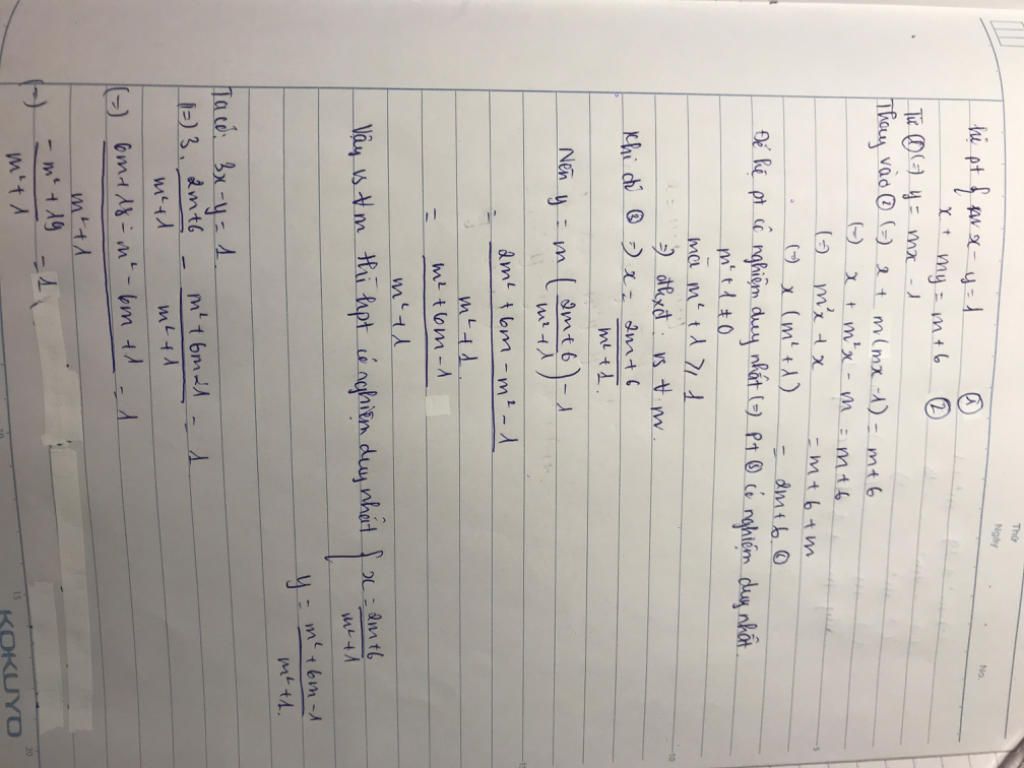 Thứ
Ngày
No.
hệ pt { mx - y = 1 ①
x + my = m + 6 ②
Từ ① (=) y = mx - 1
Thay vào ② (=) x + m(mx - 1) = m + 6
(=) x + m²x - m = m + 6
(=) m²x + x = m + 6 + m
(=) x (m² + 1) = 2m + 6. ③
Để hệ pt có nghiệm duy nhất (=) Pt ③ có nghiệm duy nhất
m² + 1 ≠ 0
mà m² + 1 ⩾ 1
=) đlxđ: vs ∀ m.
Khi đó ③ =) x = \frac{2m+6}{m²+1}.
Nên y = m ( \frac{2m+6}{m²+1} ) - 1
= \frac{2m² + 6m - m² - 1}{m² + 1}.
= \frac{m² + 6m - 1}{m² + 1}
Vậy vs ∀ m thì hpt có nghiệm duy nhất { x = \frac{2m+6}{m²+1}
y = \frac{m² + 6m - 1}{m² + 1}.
Ta có: 3x - y = 1.
(=) 3. \frac{2m+6}{m²+1} - \frac{m² + 6m - 1}{m² + 1} = 1
(=) \frac{6m + 18 - m² - 6m + 1}{m² + 1} = 1
(=) \frac{-m² + 19}{m² + 1} = 1
KOKUYO
5
10
15
20